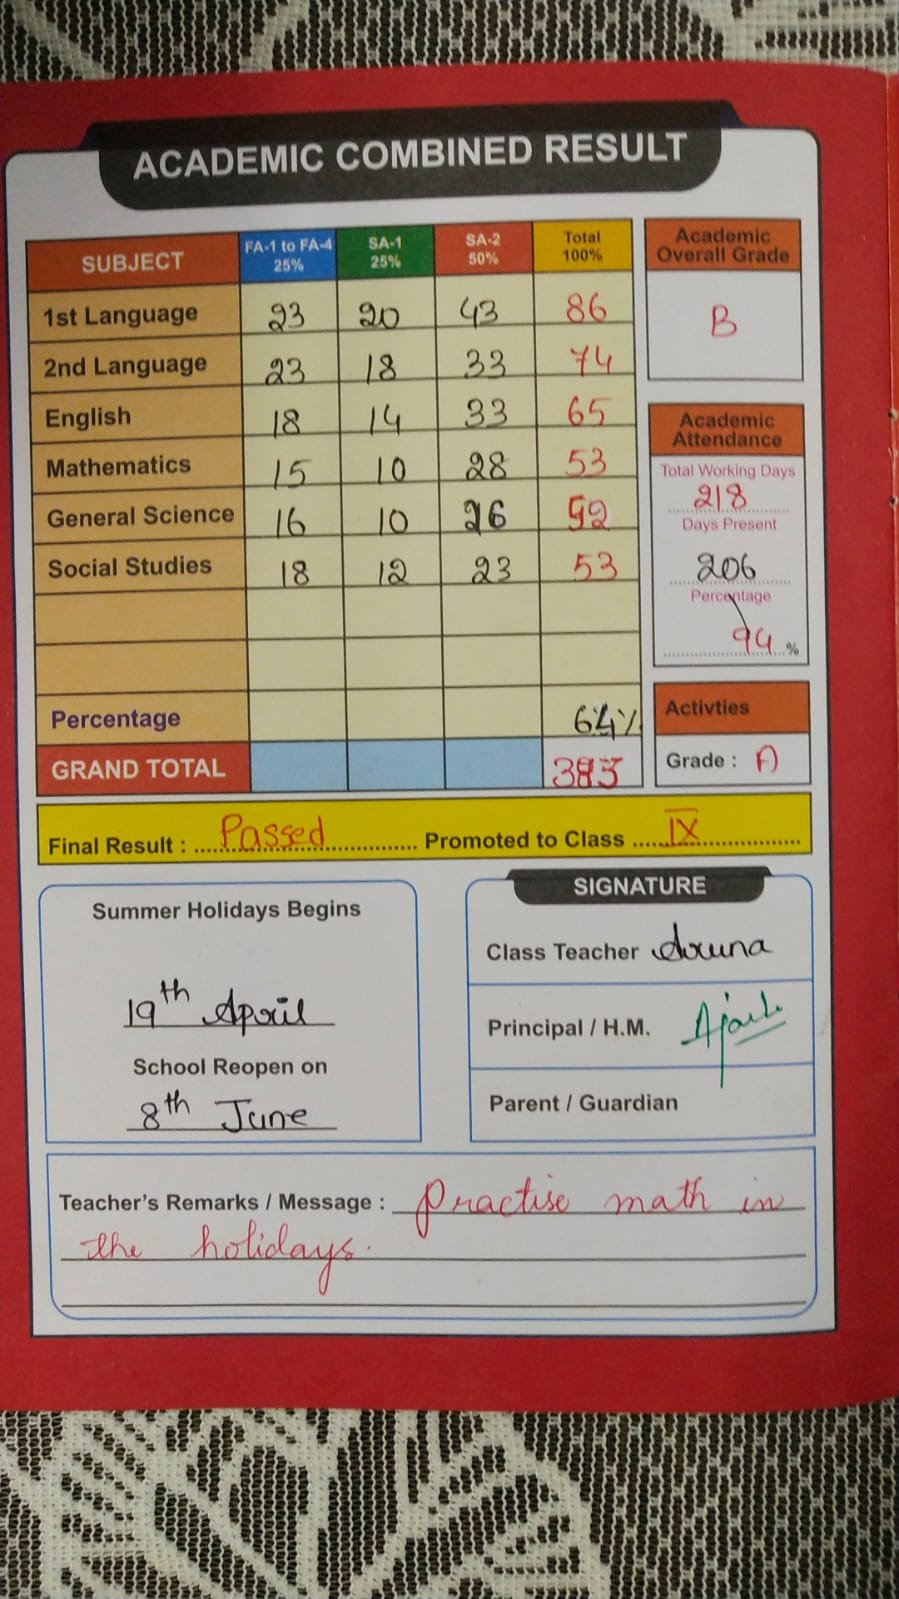 ACADEMIC COMBINED RESULT
SUBJECT FA-1 to FA-4 25% SA-1 25% SA-2 50% Total 100%
1st Language 23 20 43 86
2nd Language 23 18 33 74
English 18 14 33 65
Mathematics 15 10 28 53
General Science 16 10 26 52
Social Studies 18 12 23 53
Percentage 64%
GRAND TOTAL 383
Academic
Overall Grade
B
Academic
Attendance
Total Working Days
218
Days Present
206
Percentage
94 %
Activties
Grade : A
Final Result : Passed Promoted to Class IX
Summer Holidays Begins
19th April
School Reopen on
8th June
SIGNATURE
Class Teacher Aruna
Principal / H.M.
Parent / Guardian
Teacher's Remarks / Message : Practise math in
the holidays.